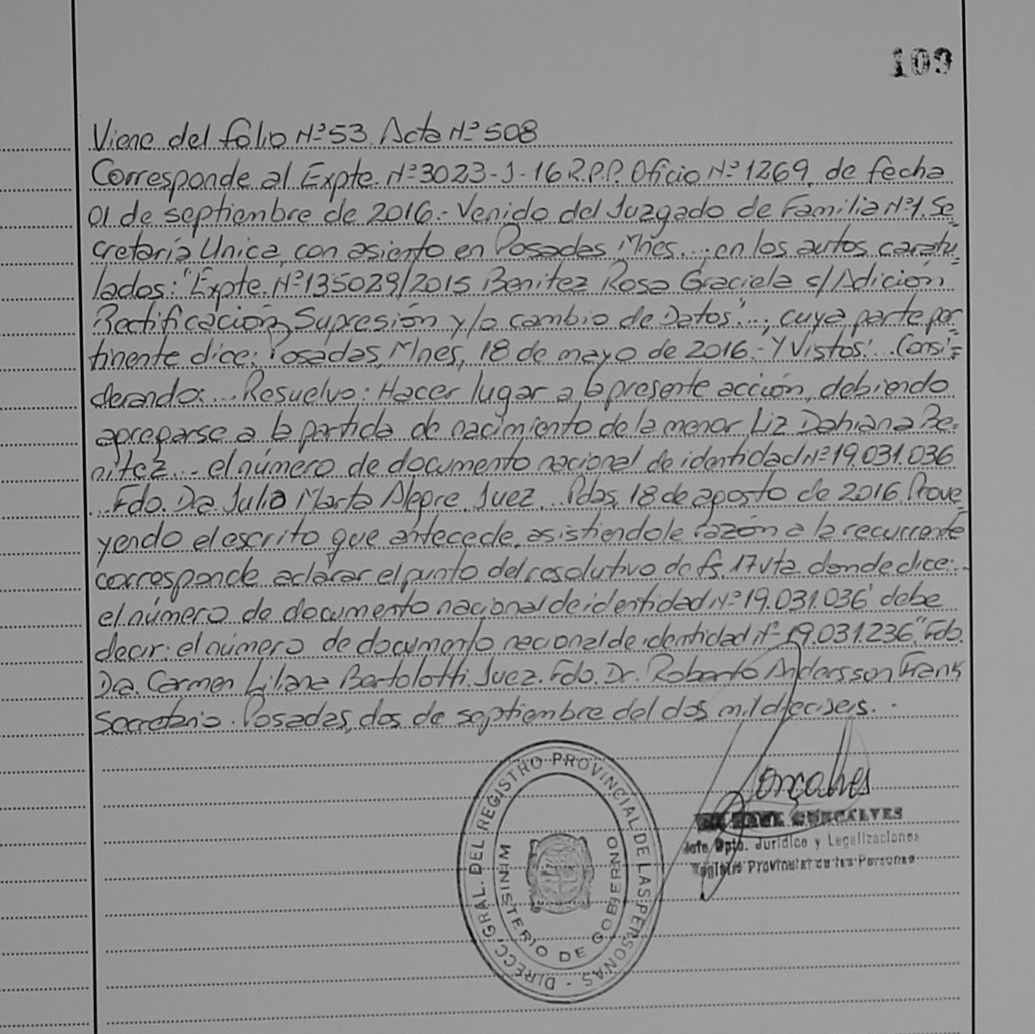 109
Viene del folio Nº 53. Acta Nº 508
Corresponde al Expte. Nº 3023-J-16 R.P.P. Oficio Nº 1269, de fecha
01 de septiembre de 2016.- Venido del Juzgado de Familia Nº 1, Se
cretaría Unica, con asiento en Posadas, Mnes..., en los autos caratu
lados: "Expte. Nº 135029/2015 Benitez Rosa Graciela s/Adición
Rectificación, Supresión y/o cambio de Datos"..., cuya parte per
tinente dice: Posadas, Mnes, 18 de mayo de 2016.- Y Vistos:... Consi=
derando:... Resuelvo: Hacer lugar a la presente acción, debiendo
agregarse a la partida de nacimiento de la menor Liz Dahiana Be-
nitez... el número de documento nacional de identidad Nº 19.031.036
...Fdo. Dra. Julia Marta Alegre. Juez... Pdas, 18 de agosto de 2016. Prove
yendo el escrito que antecede, asistiendole razón a la recurrente
corresponde aclarar el punto del resolutivo de fs. 17 vta donde dice:..
el número de documento nacional de identidad Nº 19.031.036' debe
decir: el número de documento nacional de identidad nº 19.031.236". Fdo.
Dra. Carmen Liliana Bartolotti. Juez. Fdo. Dr. Roberto Andersson Frank
Secretario. Posadas, dos de septiembre del dos mil dieciseis. -
DIRECC. GRAL. DEL REGISTRO PROVINCIAL DE LAS PERSONAS -
MINISTERIO DE GOBIERNO
Gonçalves
GONCALVES
Jefe Dpto. Jurídico y Legalizaciones
Registro Provincial de las Personas